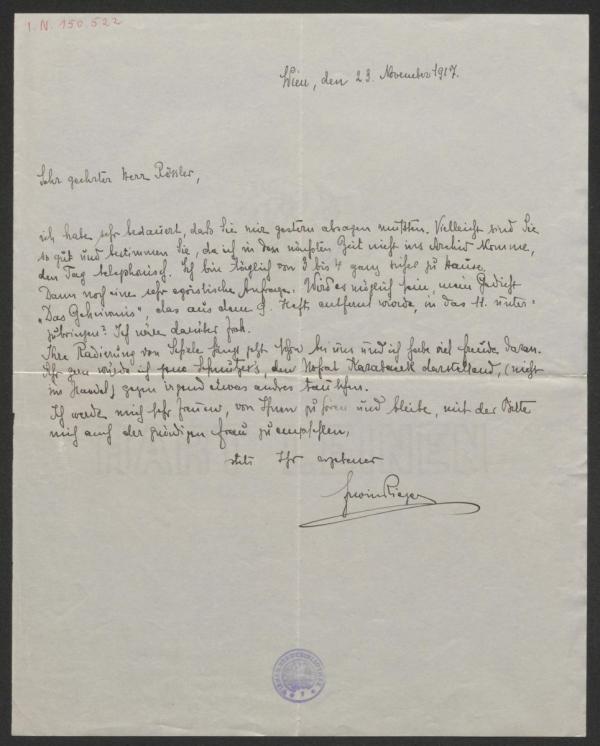 I.N. 150.522
Wien, den 23. November 1917.
Sehr geehrter Herr Rössler,
ich habe sehr bedauert, daß Sie mir gestern absagen mußten. Vielleicht sind Sie
so gut und bestimmen Sie, da ich in der nächsten Zeit nicht ins Archiv komme,
den Tag telephonisch. Ich bin täglich von 3 bis 4 ganz sicher zu Hause.
Dann noch eine sehr egoistische Anfrage. Wird es möglich sein, mein Gedicht
„Das Geheimnis", das aus dem 9. Heft entfernt wurde, in das 11. unter-
zubringen? Ich wäre darüber froh.
Ihre Radierung von Schiele hängt jetzt schon bei uns und ich habe viel Freude daran.
Ihr gern würde ich eine Schmutzer, den Hofrat Karabacek darstellend, (nicht
im Handel) gegen irgend etwas andres tauschen.
Ich werde mich sehr freuen, von Ihnen zu hören und bleibe, mit der Bitte
mich auch der gnädigen Frau zu empfehlen,
stets Ihr ergebener
Erwin Rieger